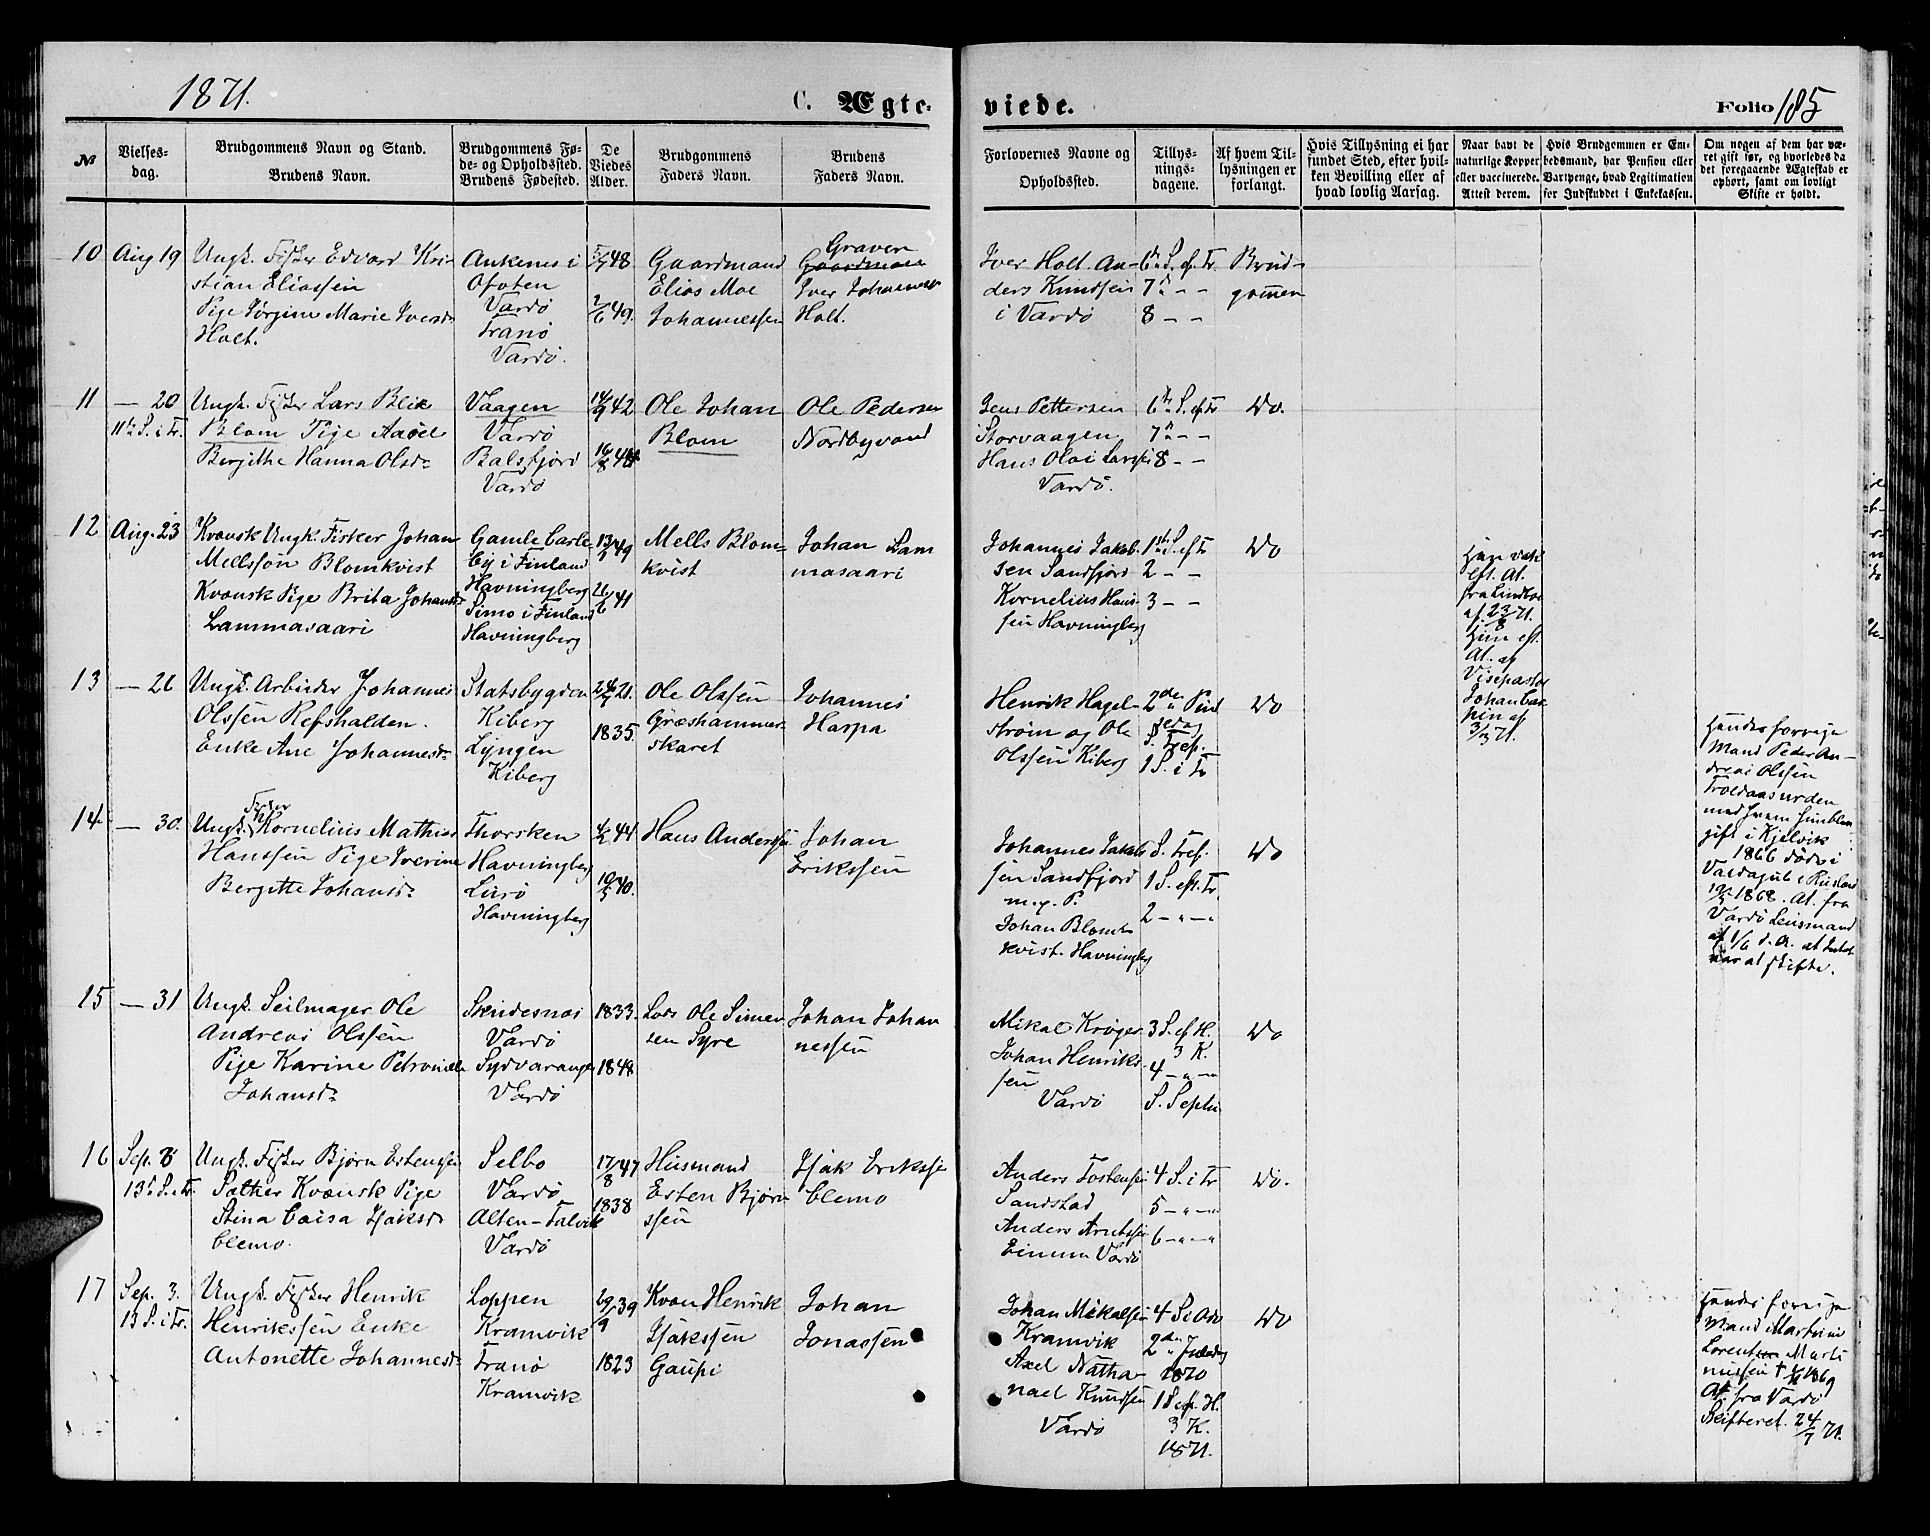 1871.
C. Ægte-
viede.
Folio 185
№
Vielses-
dag.
Brudgommens Navn og Stand.
Brudens Navn.
Brudgommens Fø-
de- og Opholdssted.
Brudens Fødested.
De
Viedes
Alder.
Brudgommens
Faders Navn.
Brudens
Faders Navn.
Forlovernes Navne og
Opholdssted.
Tillys-
nings-
dagene.
Af hvem Til-
lysningen er
forlangt.
Hvis Tillysning ei har
fundet Sted, efter hvil-
ken Bevilling eller af
hvad lovlig Aarsag.
Naar havt de
naturlige Kopper
eller vaccinerede.
Attest derom.
Hvis Brudgommen er Em-
bedsmand, har Pension eller
Vartpenge, hvad Legitimation
for Indskuddet i Enkekassen.
Om nogen af dem har væ-
ret gift før, og hvorledes da
det foregaaende Ægteskab er
ophørt, samt om lovligt
Skifte er holdt.
10
Aug 19
Ungk. Fisker Edvard Kri-
stian Eliassen
Pige Jørgine Marie Iversd.
Holt.
Ankenes i
Ofoten
Vardö
Tranö
Vardö.
48.
49.
Gaardmand
Elias Moe
Johannessen
Graver
Gaardmand
Iver Johannes
Holt.
Iver Holt. An-
ders Knudsen
i Vardö
6te S. ef. Tr
7de - -
8 - -
Brud-
gomen
11
- 20
11te S. i Tr.
Ungk. Fisker Lars Blix
Blom Pige Aasel
Bergithe Hanna Olsd.
Vaagen
Vardö
Balsfjord
Vardö
14/9 42
16/8 48
Ole Johan
Blom
Ole Pedersen
Nordbyvand
Jens Pettersen
Storvaagen
Hans Olai Larssen
Vardö.
6te S. ef Tr
7de - -
8 - -
Do.
12
Aug. 23
Kvænsk Ungk. Fisker Johan
Mellssön Blomkvist
Kvænsk Pige Brita Johansd.
Lammasaari
Gamle Carle
by i Finland
Havningberg
Simo i Finland
Havningberg
49
26/6 41
Mells Blom-
kvist
Johan Lam
masaari
Johannes Jakob-
sen Sandfjord
Kornelius Hans-
sen Havningberg
1ste S. ef Tr
2 - -
3 - -
Do
Han vak
eft. At.
af. 23/8 71.
Hun eft.
At. af
Visepastor
3/3 71.
13
- 26
Ungk. Arbeider Johannes
Olssen Refshalden.
Enke Ane Johannesd.
Statsbygden
Kiberg
Lyngen
Kiberg
21.
1835.
Ole Olssen
Græshammer-
skaret
Johannes
Harpa
Henrik Hagel-
ström og Ole
Olssen Kiberg
2den Pint
sedag
S. Tref.
1 S. i Tr
Do
Hendes forrige
Mand Peder An-
dreas Olssen
Troldaasurden
med hvem hun blev
gift i Kjelvik
1866 döde i
Vaidagub i Rusland
1868. At. fra
Vardö Lensmand
af 1/6 d. A. at Intet
var at skifte.
14
- 30.
Fisker
Ungk. Kornelius Mathias
Hanssen Pige Iverine
Bergitte Johansd.
Thorsken
Havningberg
Lurö
Havningberg
44.
40.
Hans Anderssen
Johan
Erikssen
Johannes Jakob
sen Sandfjord
m. p. P.
Johan Blom-
kvist. Havningbg
S. Tref.
1 S. eft. Tr.
2 - " - "
Do
15
- 31
Ungk. Seilmager Ole
Andreas Olssen
Pige Karine Petronelle
Johansd.
Skudesnæs
Vardö
Sydvaranger
Vardö
1833.
1848.
Lods Ole Simen
sen Syre
Johan Johan
nessen
Mikal Kröger
Johan Henriks-
sen
Vardö
3 S. ef H.
3 K.
4 - " - "
S. Septu
Do
16
Sep. 8
13de S. i Tr.
Ungk. Fisker Björn Estenssen
Sæther Kvænsk Pige
Stina Caisa Isaksd.
Clemo.
Selbo
Vardö
Alten-Talvik
Vardö
17/8 47
1838
Husmand
Esten Björn
ssen
Isak Erikssen
Clemo
Anders Tostensen
Sandstad
Anders Arntssen
Eimma Vardö
4 S. i Tr
5 - " - "
6 - " - "
Do.
17
Sep. 3.
13 S. i Tr.
Ungk. Fisker Henrik
Henrikssen Enke
Antonette Johannesd.
Loppen
Kramvik
Tranö
Kramvik
29/9 39
1823
Kvæn Henrik
Isakssen
Gaupi
Johan
Jonassen
Johan Mikalsen
Kramvik
Axel Natha-
nael Knudsen
Vardö
4 S. i Adv
2den Juledag
1870
1 S. ef. H.
3 K.
1871.
Do
Hendes forrige
Mand Martin
Lorentsen Marti
nussen † 1869
At fra Vardö
Skifteret. 24/7 71.